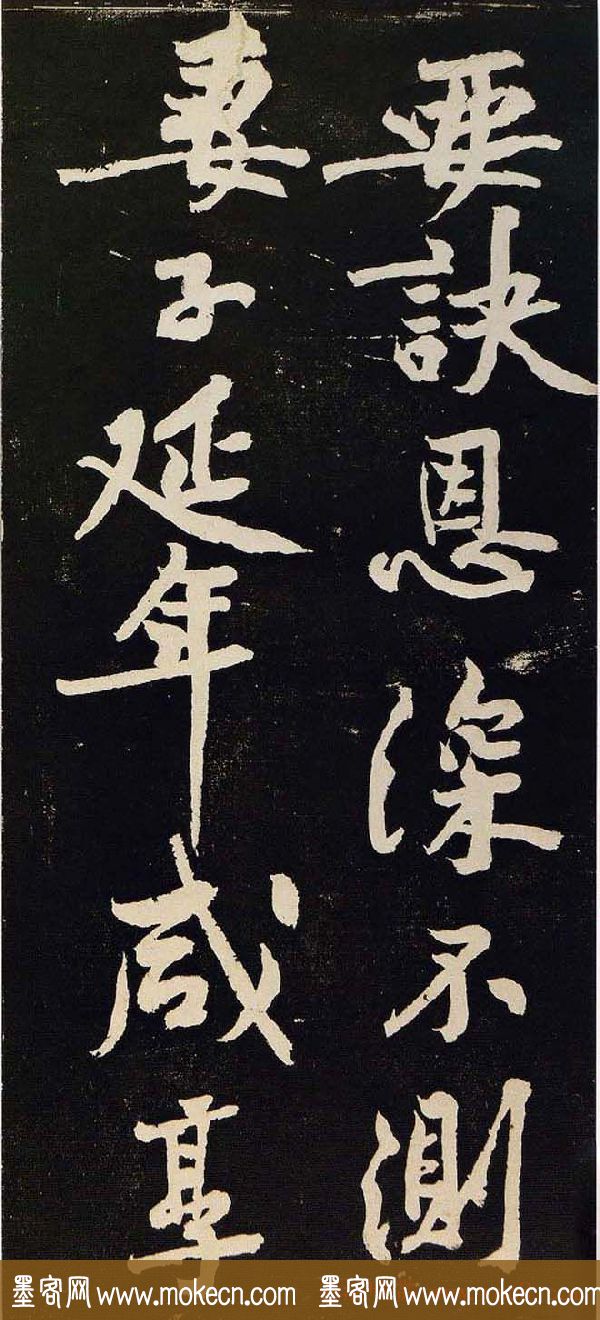 要訣恩深不測
妻子延年咸享
墨客网 www.mokecn.com 墨客网 www.mokecn.com